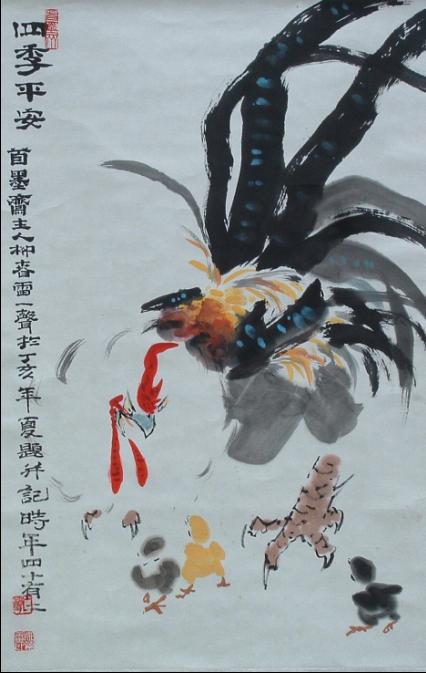 四季平安 首墨齋主人柳春雷一聲於丁亥年夏題并記時年四十有